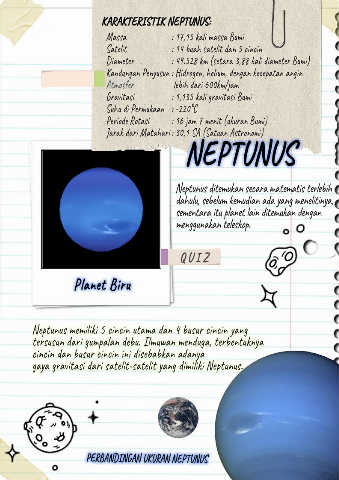 KARAKTERISTIK NEPTUNUS:
Massa : 17,15 kali massa Bumi
Satelit : 14 buah satelit dan 5 cincin
Diameter : 49.528 km (setara 3,88 kali diameter Bumi)
Kandungan Penyusun : Hidrogen, helium, dengan kecepatan angin
Atmosfer lebih dari 600km/jam
Gravitasi : 1,135 kali gravitasi Bumi
Suhu di Permukaan : -220°C
Periode Rotasi : 16 jam 7 menit (ukuran Bumi)
Jarak dari Matahari : 30,1 SA (Satuan Astronomi)
NEPTUNUS
Neptunus ditemukan secara matematis terlebih
dahulu, sebelum kemudian ada yang menelitinya,
sementara itu planet lain ditemukan dengan
menggunakan teleskop.
QUIZ
Planet Biru
Neptunus memiliki 5 cincin utama dan 4 busur cincin yang
tersusun dari gumpalan debu. Ilmuwan menduga, terbentuknya
cincin dan busur cincin ini disebabkan adanya
gaya gravitasi dari satelit-satelit yang dimiliki Neptunus.
PERBANDINGAN UKURAN NEPTUNUS